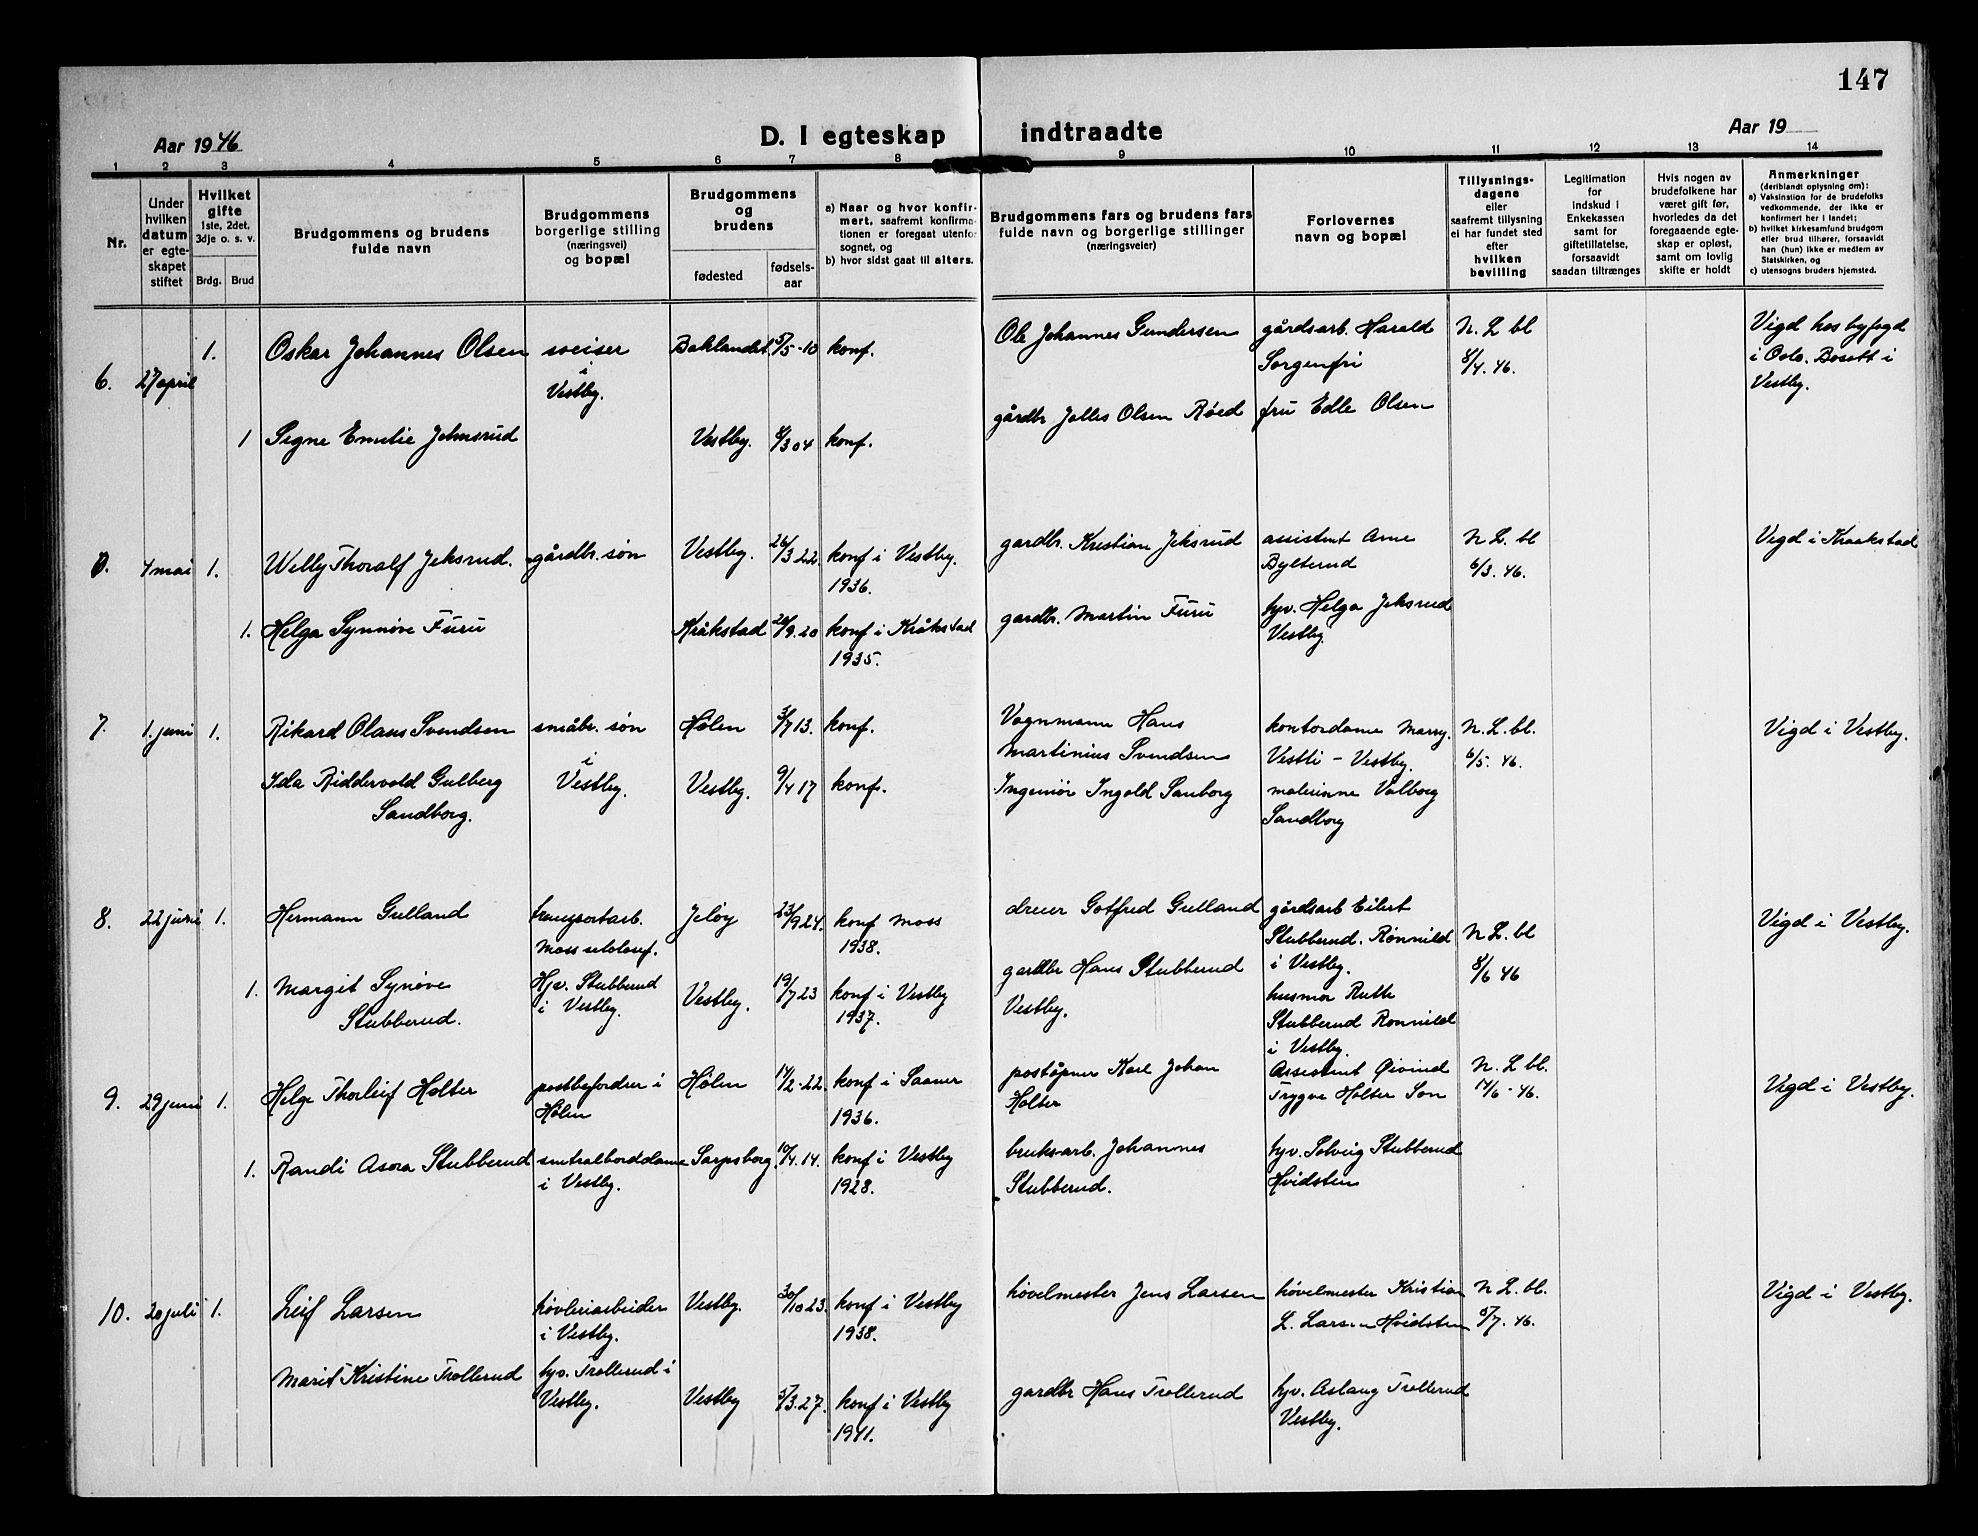 147
Aar 1946
D. I egteskap indtraadte
Aar 19
1 2 3 4 5 6 7 8 9 10 11 12 13 14
Nr.
Under
hvilken
datum
er egte-
skapet
stiftet
Hvilket
gifte
1ste, 2det,
3dje o. s. v.
Brdg. Brud
Brudgommens og brudens
fulde navn
Brudgommens
borgerlige stilling
(næringsvei)
og bopæl
Brudgommens
og
brudens
fødested
fødsels-
aar
a) Naar og hvor konfir-
mert, saafremt konfirma-
tionen er foregaat utenfor
sognet, og
b) hvor sidst gaat til alters.
Brudgommens fars og brudens fars
fulde navn og borgerlige stillinger
(næringsveier)
Forlovernes
navn og bopæl
Tillysnings-
dagene
eller
saafremt tillysning
ei har fundet sted
efter
hvilken
bevilling
Legitimation
for
indskud i
Enkekassen
samt for
giftetillatelse,
forsaavidt
saadan tiltrænges
Hvis nogen av
brudefolkene har
været gift før,
hvorledes da det
foregaaende egte-
skap er opløst,
samt om lovlig
skifte er holdt
Anmerkninger
(deriblandt oplysning om):
a) Vaksination for de brudefolks
vedkommende, der ikke er
konfirmert her i landet;
b) hvilket kirkesamfund brudgom
eller brud tilhører, forsaavidt
han (hun) ikke er medlem av
Statskirken, og
c) utensogns bruders hjemsted.
6. 27 april 1.
Oskar Johannes Olsen
sveiser
i
Vestby.
Baklandet 5/5-10 konf.
Ole Johannes Gundersen
gårdsarb. Harald
Sorgenfri
N. L bl
8/4. 46.
Vigd hos byfogd
i Oslo. Bosatt i
Vestby.
1 Signe Emilie Jelmsrud
Vestby. 6/3 04 konf.
gårdbr Jelles Olsen Røed
fru Edle Olsen
0. 4 mai 1.
Willy Thoralf Jeksrud.
gårdbr. søn
Vestby. 26/3 22. konf i Vestby.
1936.
gardbr. Kristian Jeksrud
assistent Arne
Bylterud
N L. bl
6/3. 46.
Vigd i Kraakstad
1. Helga Synnøve Furu
Kråkstad 20/9.20 konf i Kråkstad
1935.
gardbr. Martin Furu
hjv. Helga Jeksrud
Vestby.
7. 1. juni 1.
Rikard Olaus Svendsen
småbr. søn
i
Vestby.
Hølen 3/7 13. konf.
Vognmann Hans
Martinius Svendsen
kontordame Marry.
Vestli - Vestby.
N. L. bl.
6/5. 46.
Vigd i Vestby.
Ida Riddervold Gulberg
Sandborg.
Vestby. 9/4 17 konf.
Ingeniør Ingold Sanborg
malerinne Valborg
Sandborg
8. 22 juni 1.
Hermann Gulland
transportarb.
Moss
Jeløy 23/9 24. konf Moss
1938.
dreier Gotfred Gulland
gårdsarb Eilert
Stubberud. Rønnild
i Vestby.
N L. bl
8/6 46
Vigd i Vestby.
1. Margit Synøve
Stubberud.
Hjv. Stubberud
i Vestby.
Vestby. 19/7 23 konf i Vestby
1937.
gardbr Hans Stubberud
Vestby.
husmor Ruth
Stubberud Ronnild
i Vestby.
9. 29 juni 1.
Helge Thorleif Holter
postbefordrer i
Hølen
Hølen 14/2-22. konf i Saaner
1936.
poståpner Karl Johan
Holter
Assistent Øivind
Trygve Holter Son
N. L bl.
14/6-46.
Vigd i Vestby.
1. Randi Asora Stubberud
sentralborddame
i Vestby.
Sarpsborg. 10/4. 14. konf i Vestby
1928.
bruksarb. Johannes
Stubberud.
hjv. Solveig Stubberud
Hvidsten
10. 20 juli 1.
Leif Larsen
høvleriarbeider
i Vestby.
Vestby. 30/10 23. konf i Vestby
1938.
høvelmester Jens Larsen
høvelmester Kristian
L. Larsen Hvidsten
N L. bl.
5/7. 46.
Vigd i Vestby.
Marit Kristine Trollerud
hjv. Trollerud i
Vestby.
Vestby 5/3.27. konf i Vestby
1941.
gardbr Hans Trollerud
hjv. Aslaug Trollerud
Vestby.